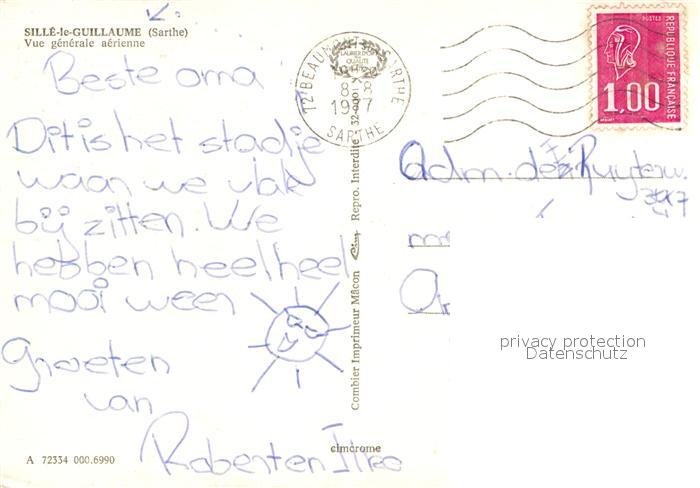 SILLÉ-le-GUILLAUME (Sarthe)
Vue générale aérienne
Beste oma
Dit is het stadje
waar we vlak
bij zitten. We
hebben heel heel
mooi weer
Groeten
van
Robert en
A 72334 000.6990
cimcrome
Combier Imprimeur Mâcon
Repro. Interdite
72 BEAUMONT S SARTHE
8-8
1977
SARTHE
POSTES
REPUBLIQUE FRANÇAISE
1,00
Adm. de Ruyterw.
privacy protection
Datenschutz